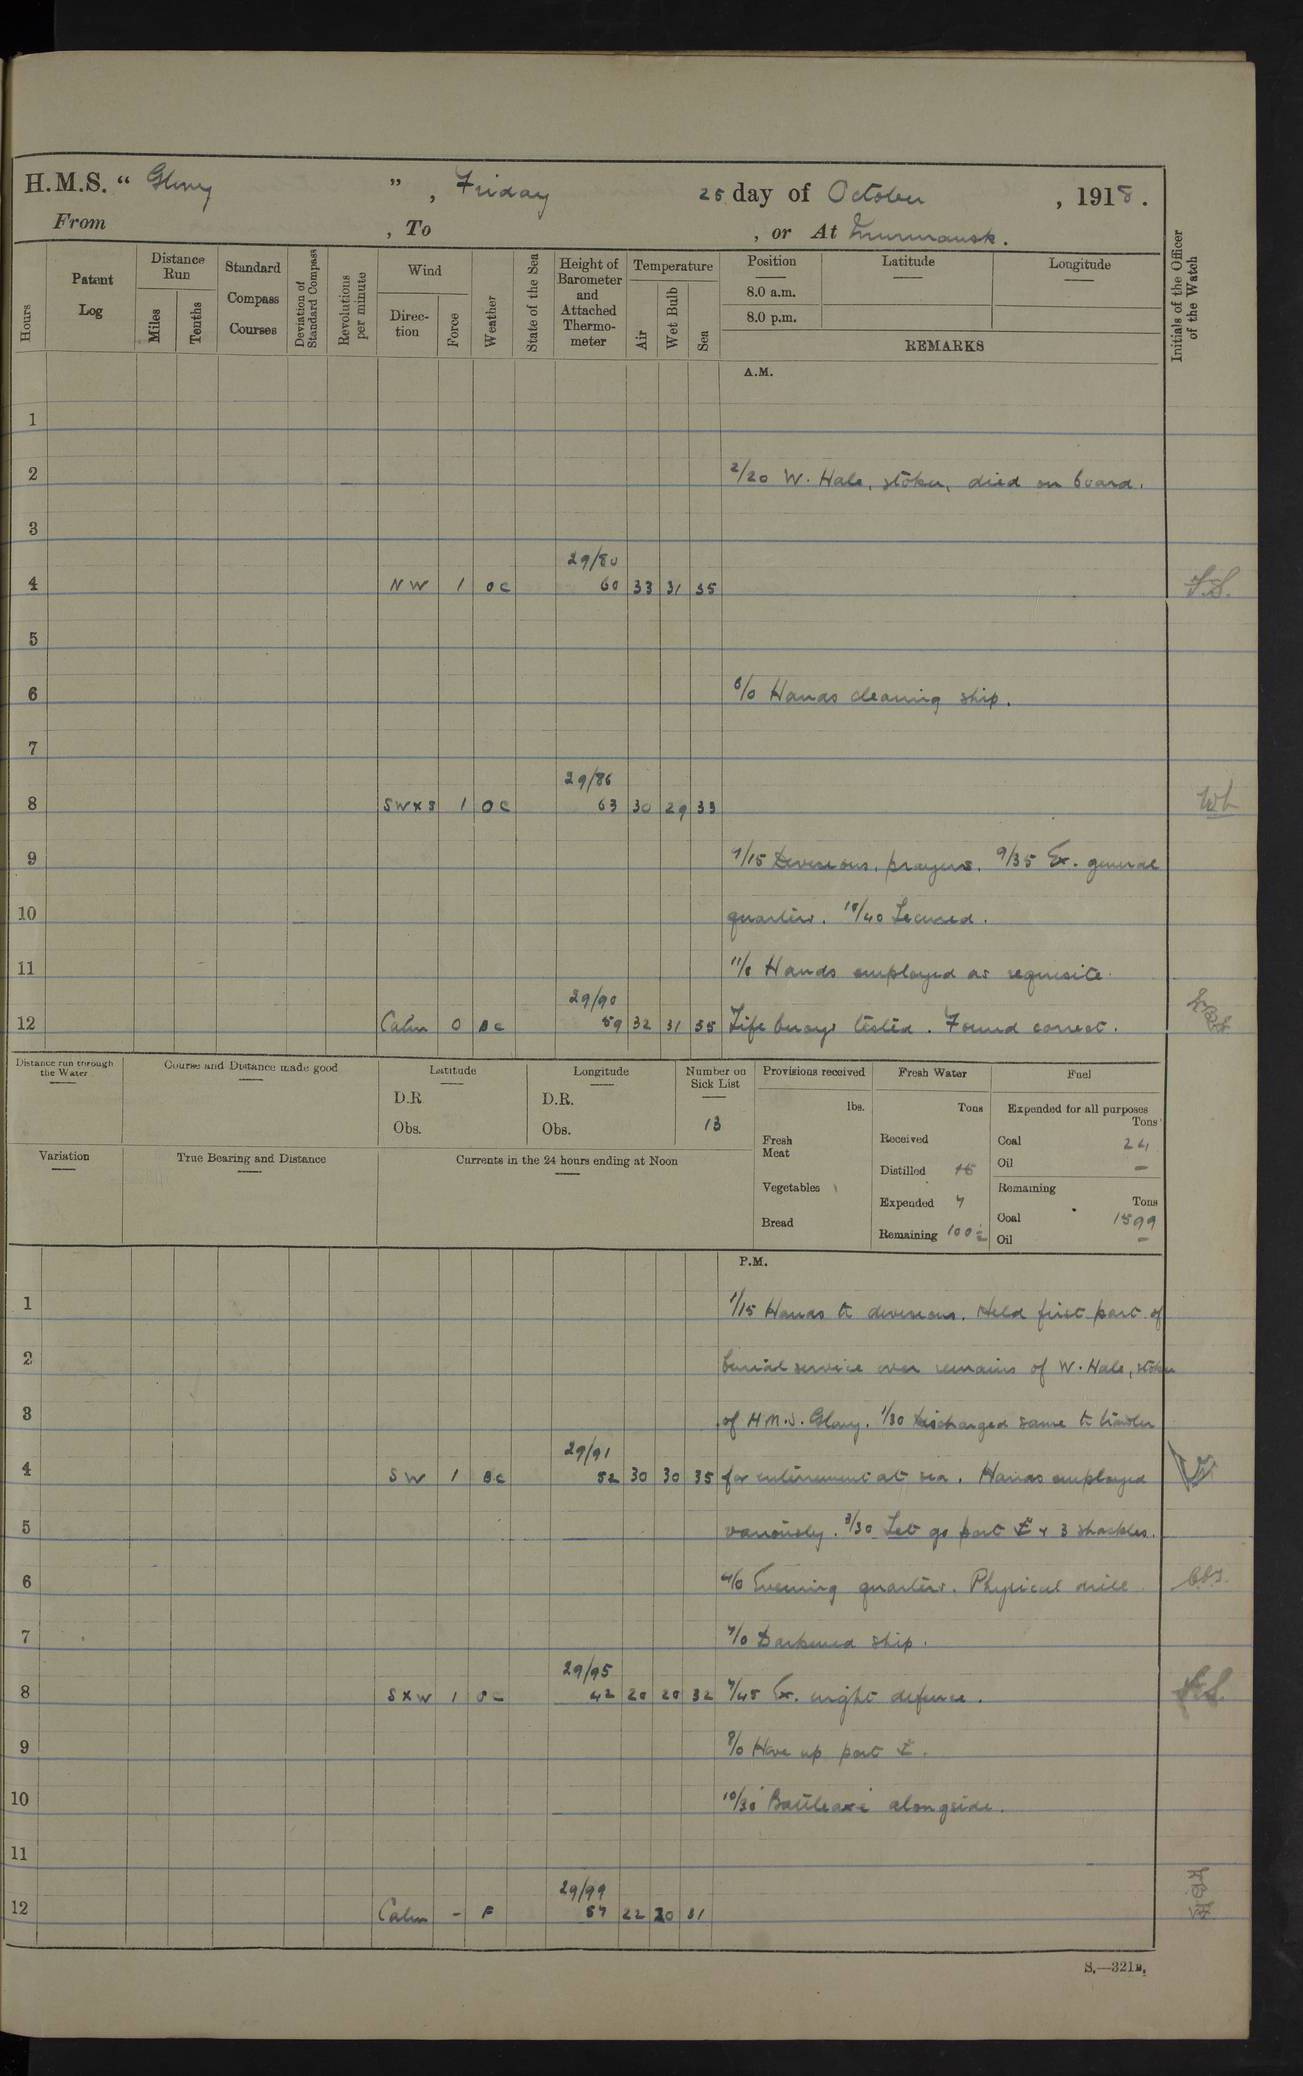 H.M.S. “ Glory ” , Friday 25 day of October , 1918.
From , To , or At Murmansk.
Hours
Patent Log
Distance Run
Miles
Tenths
Standard Compass Courses
Deviation of Standard Compass
Revolutions per minute
Wind
Direction
Force
Weather
State of the Sea
Height of Barometer and Attached Thermometer
Temperature
Air
Wet Bulb
Sea
Position
Latitude
Longitude
8.0 a.m.
8.0 p.m.
REMARKS
Initials of the Officer of the Watch
A.M.
1
2 2/20 W. Hale, stoker, died on board.
3
29/80
4 NW 1 oc 60 33 31 35
5
6 6/0 Hands cleaning ship.
7
29/86
8 SWxS 1 oc 63 30 29 33
9 9/15 Divisions, prayers. 9/35 Ex. general
10 quarters. 10/40 Secured.
11 11/0 Hands employed as requisite.
29/90
12 Calm 0 bc 59 32 31 35 Life buoys tested. Found correct.
Distance run through the Water
Course and Distance made good
Latitude
D.R
Obs.
Longitude
D.R.
Obs.
Number on Sick List
13
Provisions received
lbs.
Fresh Meat
Vegetables
Bread
Fresh Water
Tons
Received
Distilled 15
Expended 7
Remaining
Fuel
Expended for all purposes
Tons
Coal 24
Oil –
Remaining
Tons
Coal 1599
Oil –
Variation
True Bearing and Distance
Currents in the 24 hours ending at Noon
P.M.
1 1/15 Hands to divisions. Held first part of
2 burial service over remains of W. Hale, stoker
3 of H.M.S. Glory. 1/30 Discharged same to trawler
29/91
4 SW 1 bc 52 30 30 35 for internment at sea. Hands employed
5 variously. 3/30 Let go port & 3 shackles.
6 4/0 Evening quarters. Physical drill
7 7/0 Darkened ship.
29/95
8 SxW 1 42 20 20 32 7/45 Ex. night defence.
9 8/0 Hove up port
10 10/30 'Battleaxe' alongside.
11
29/99
12 Calm – F 57 22 20 31
S.—321B.